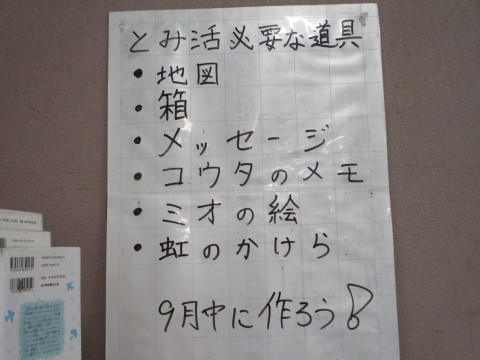 とみ活必要な道具
• 地図
• 箱
• メッセージ
• コウタのメモ
• ミオの絵
• 虹のかけら
9月中に作ろう!